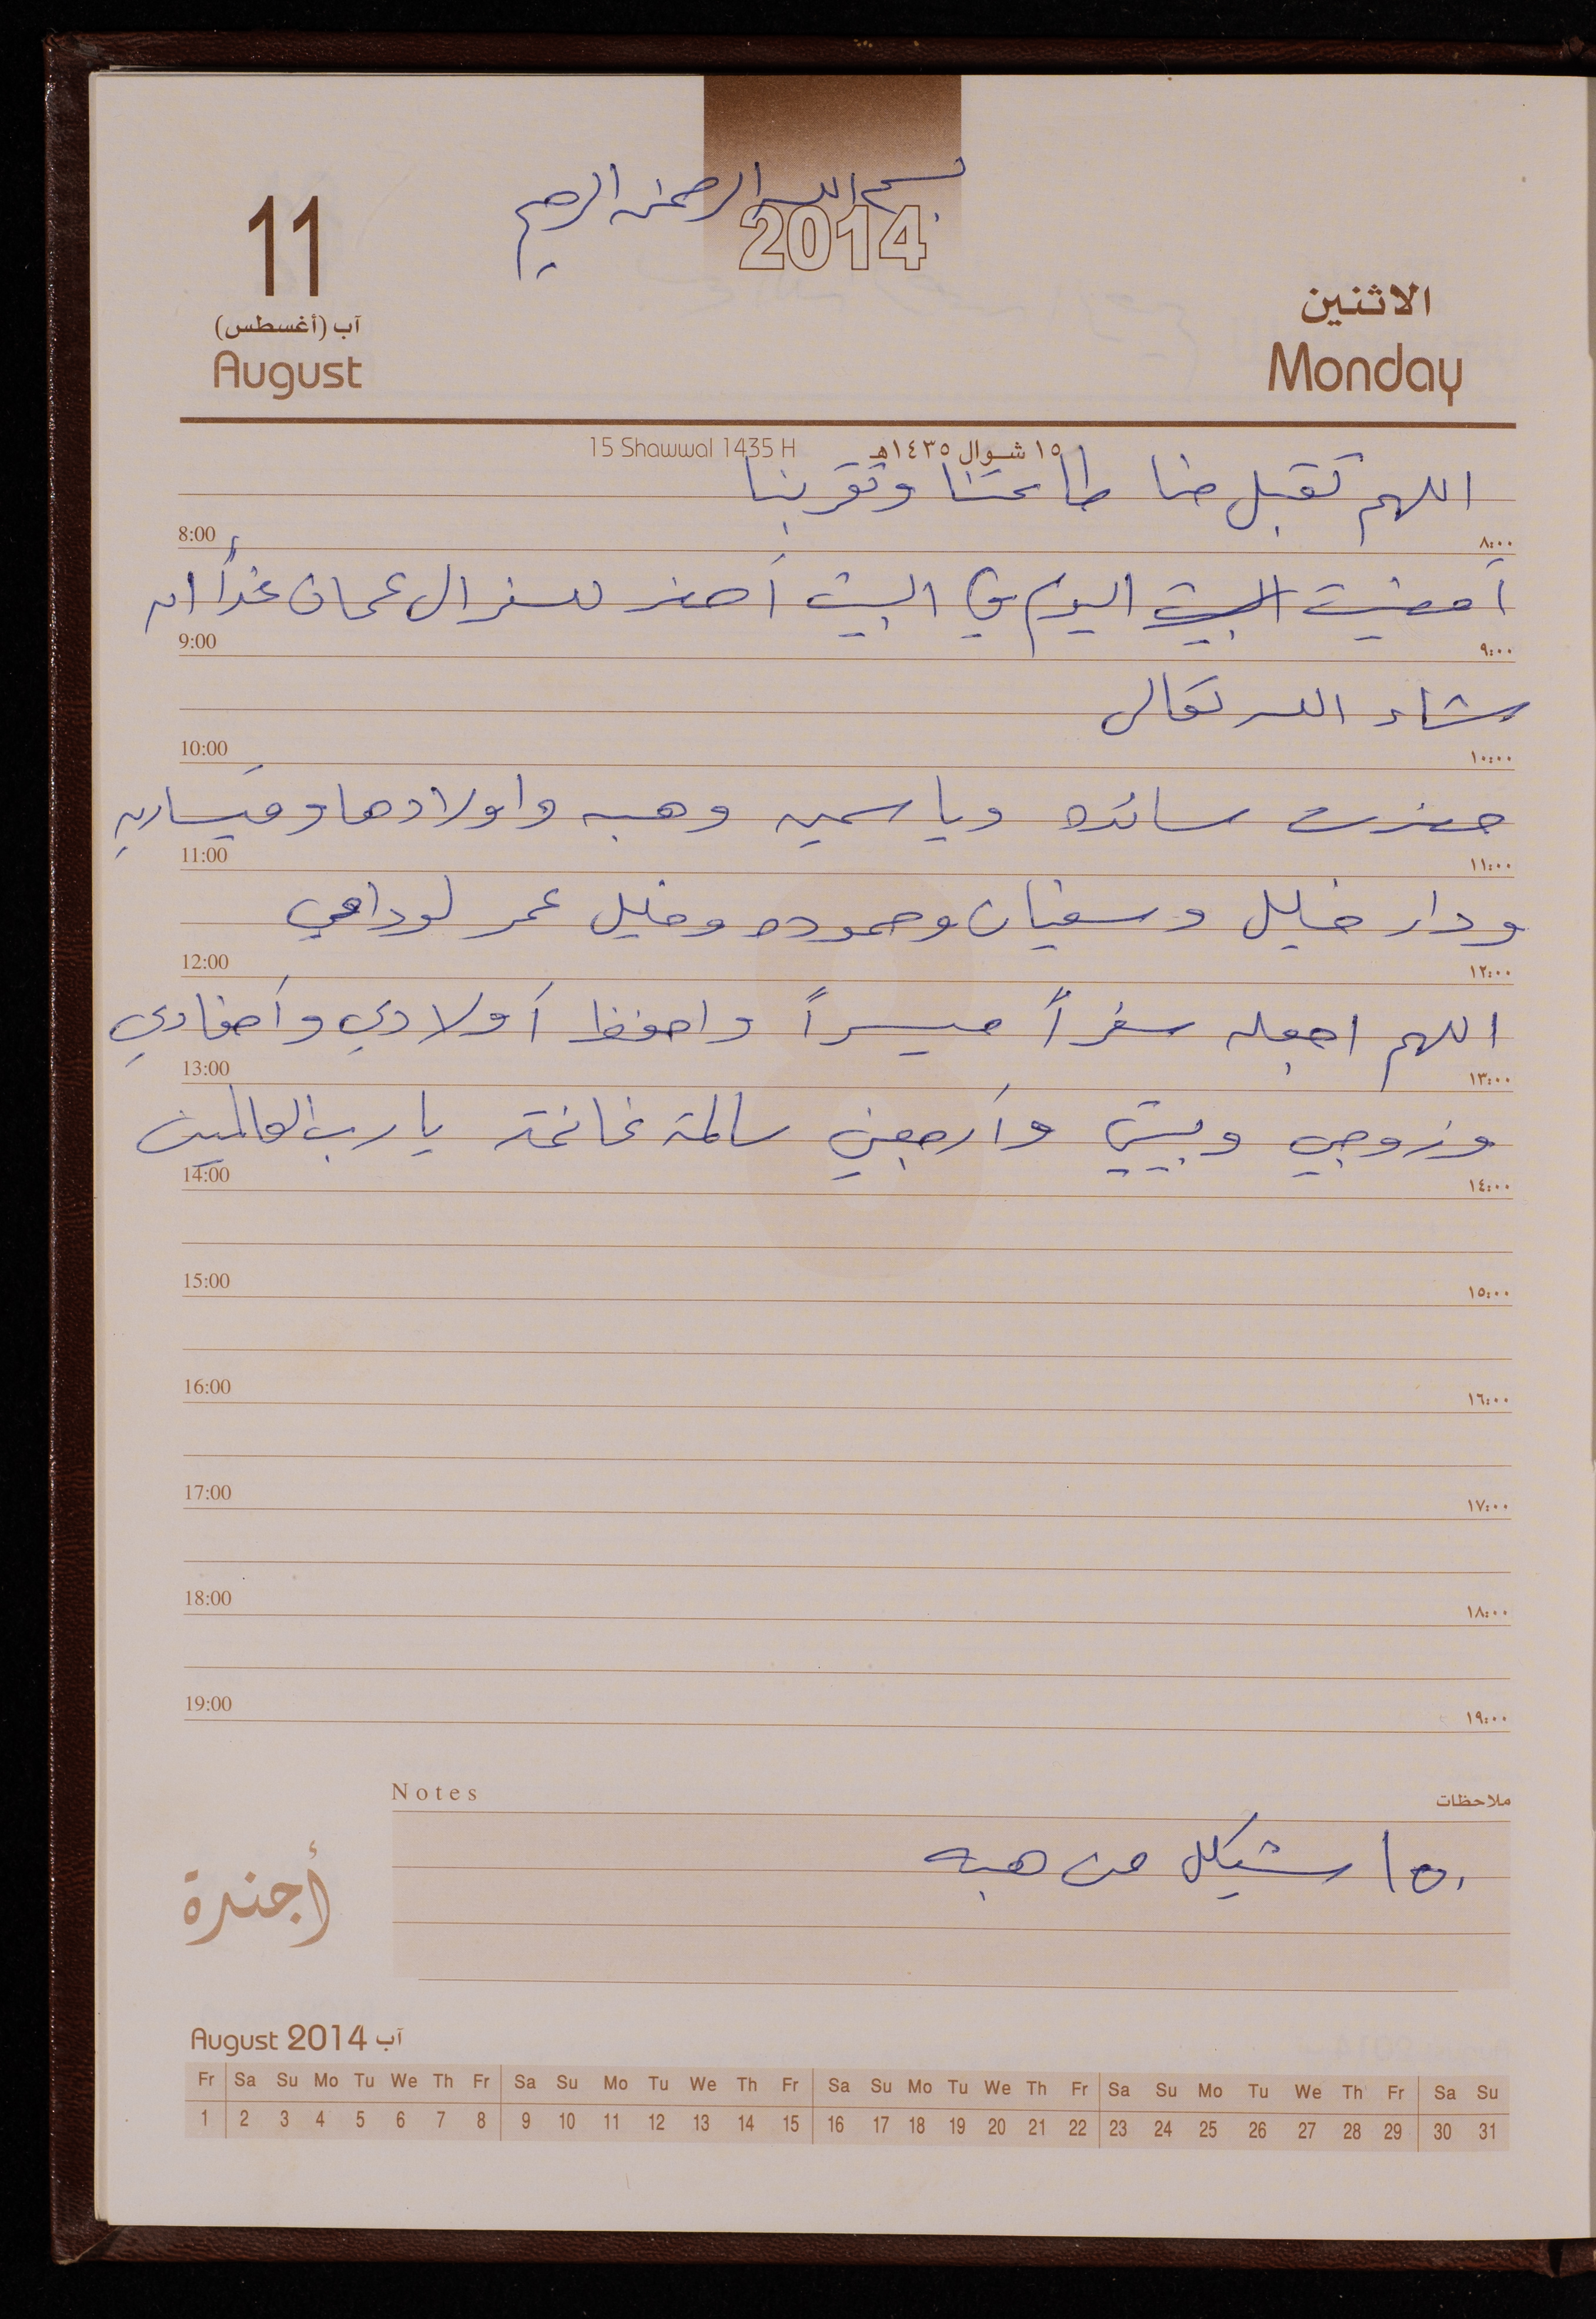 بسم الله الرحمن الرحيم
2014
11
آب (أغسطس)
August
الاثنين
Monday
15 Shawwal 1435 H ١٥ شوال ١٤٣٥هـ
اللهم تقبل منا طاعتنا وتقربنا
8:00 ٨:٠٠
أمضيت البيت اليوم في البيت أحضر للسفر الى عمان غداً ان
9:00 ٩:٠٠
شاء الله تعالى
10:00 ١٠:٠٠
حضرت سائده وياسمين وهبه واولادها وميسارين
11:00 ١١:٠٠
ودار خليل وسفيان وحموده وخليل عمر لوداعي
12:00 ١٢:٠٠
اللهم اجعله سفراً ميسراً واحفظ أولادي وأحفادي
13:00 ١٣:٠٠
وزوجي وبيتي وأرجعني سالمة غانمة يا رب العالمين
14:00 ١٤:٠٠
15:00 ١٥:٠٠
16:00 ١٦:٠٠
17:00 ١٧:٠٠
18:00 ١٨:٠٠
19:00 ١٩:٠٠
Notes ملاحظات
١٥٠ شيكل من هبه
أجندة
August 2014 آب
Fr Sa Su Mo Tu We Th Fr Sa Su Mo Tu We Th Fr Sa Su Mo Tu We Th Fr Sa Su Mo Tu We Th Fr Sa Su
1 2 3 4 5 6 7 8 9 10 11 12 13 14 15 16 17 18 19 20 21 22 23 24 25 26 27 28 29 30 31